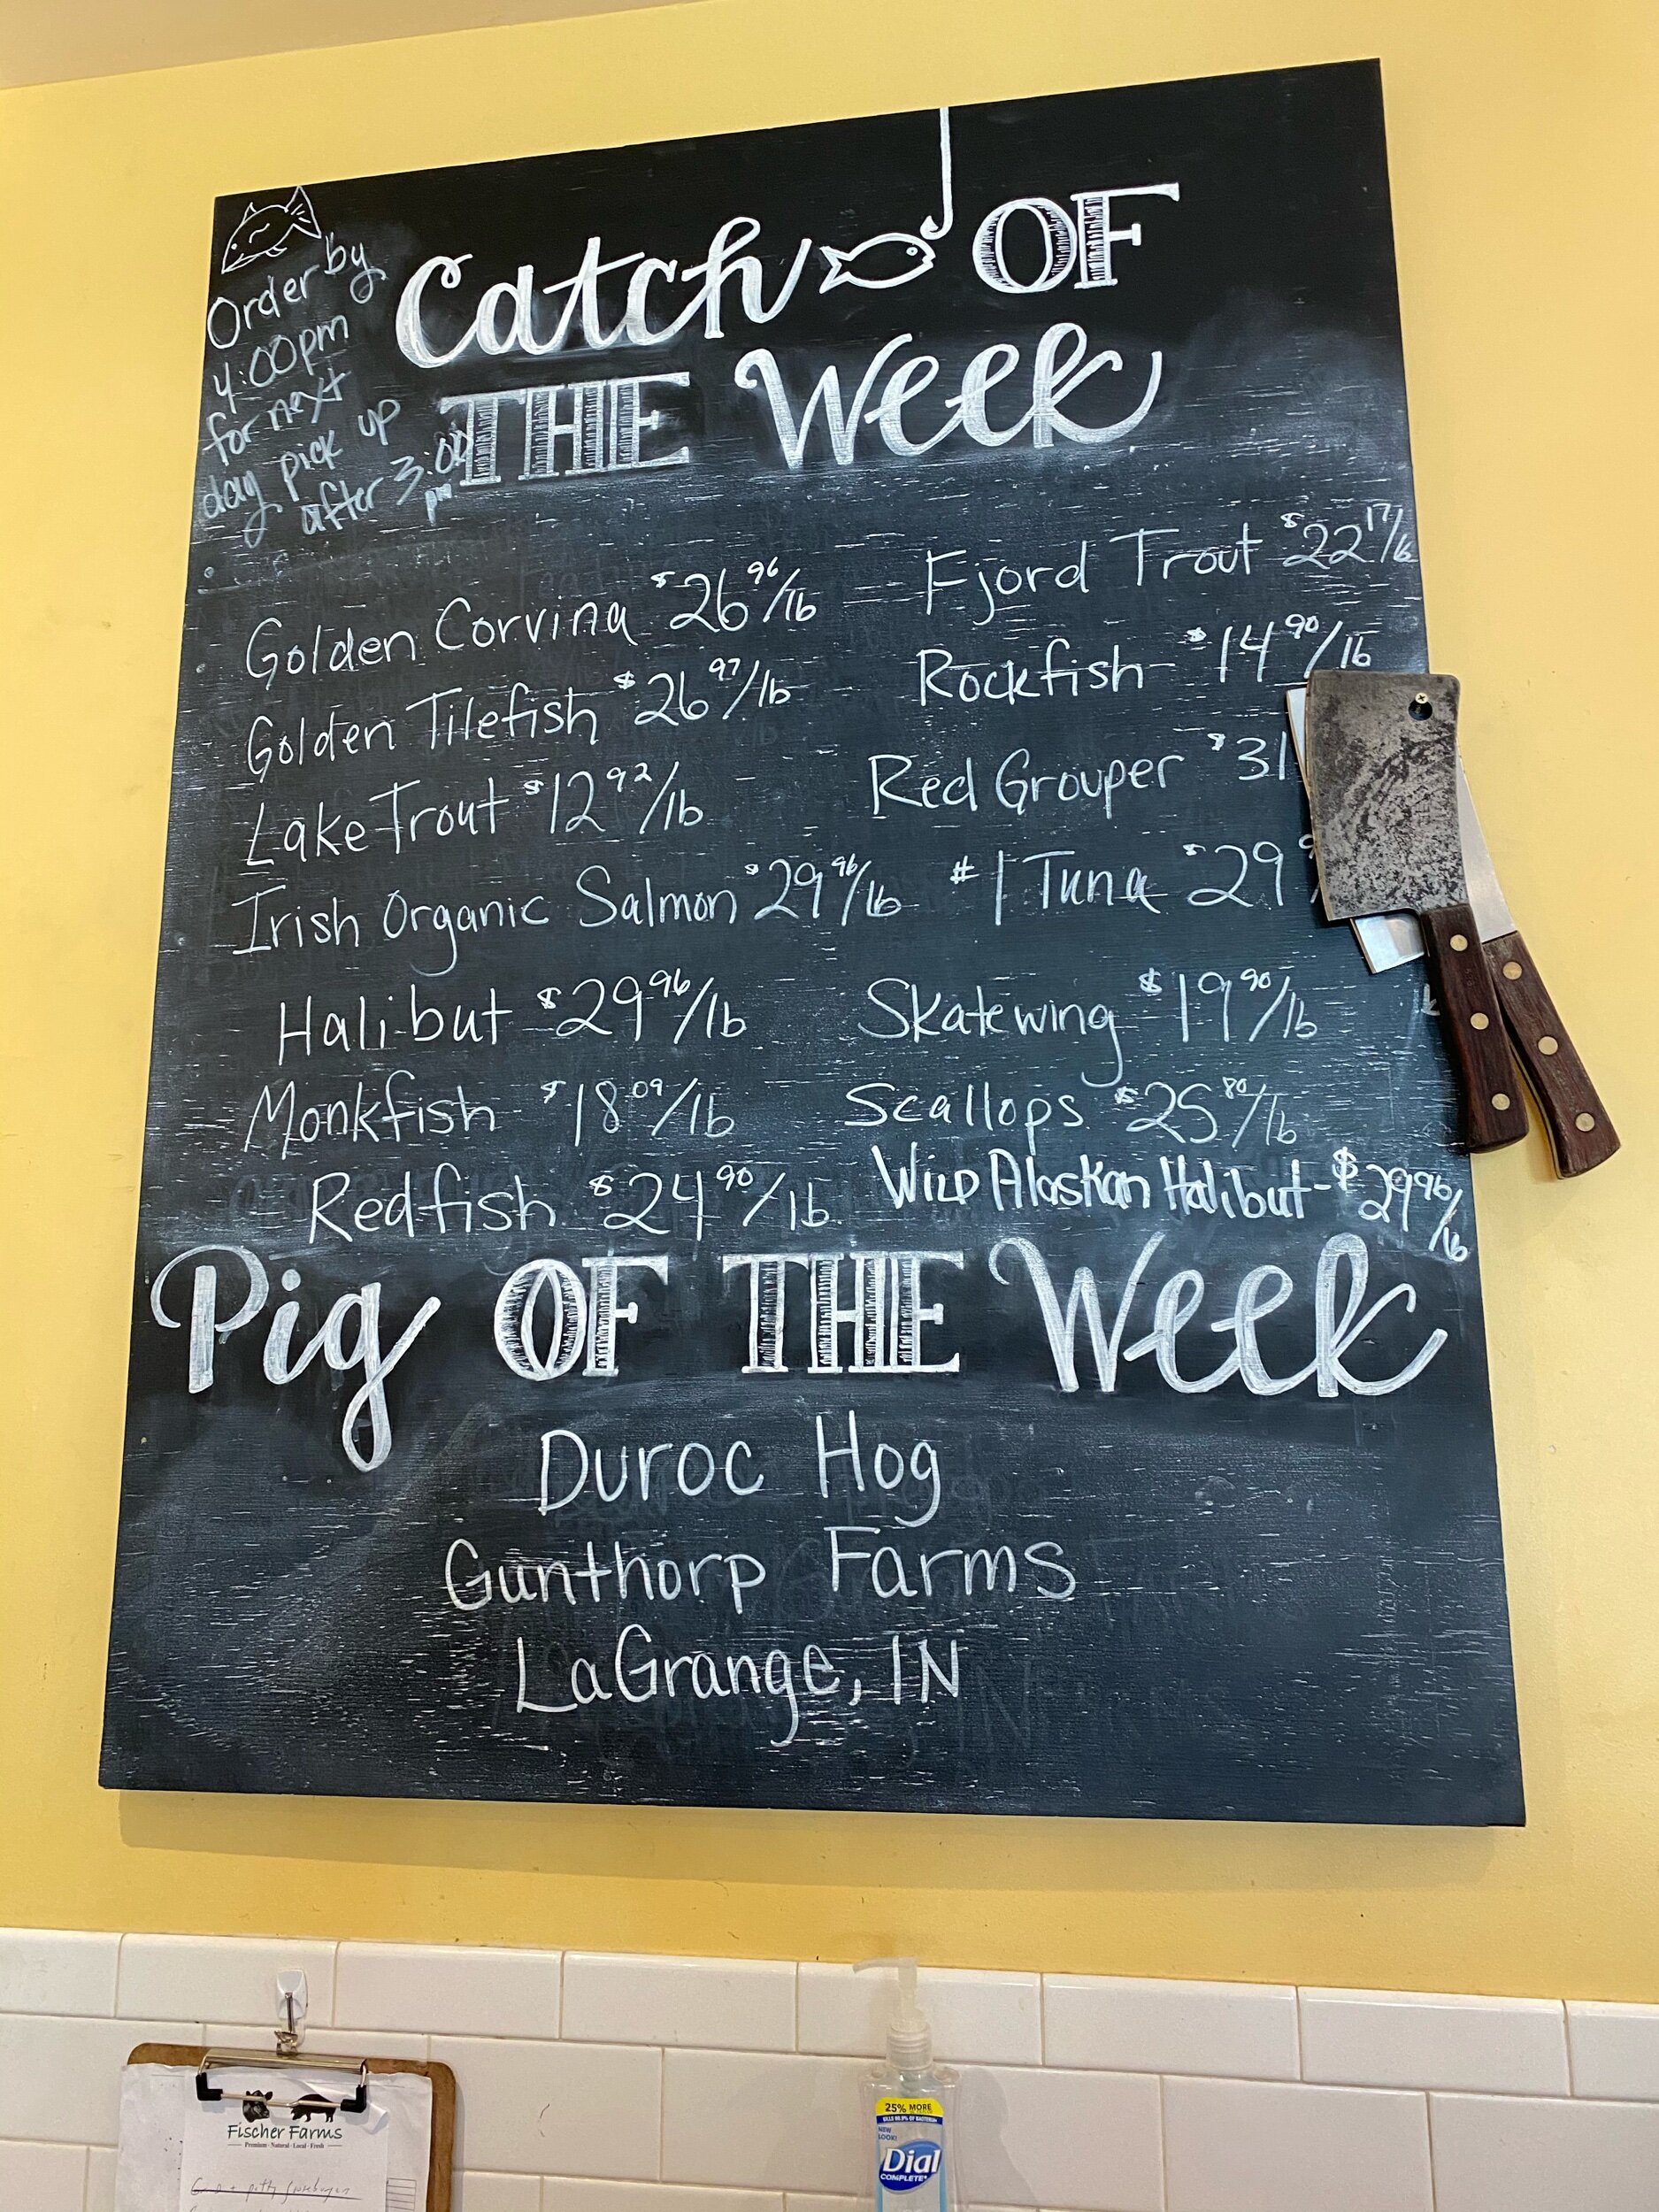 Order by
4:00pm
for next
day pick up
after 3:00
pm
Catch OF
THE Week
Golden Corvina $26 96/lb
Golden Tilefish $26 97/lb
Lake Trout $12 92/lb
Irish Organic Salmon $29 96/lb
Halibut $29 96/lb
Monkfish $18 09/lb
Redfish $24 90/lb
Fjord Trout $22 17/lb
Rockfish $14 90/lb
Red Grouper $31
#1 Tuna $29
Skatewing $19 90/lb
Scallops $25 80/lb
Wild Alaskan Halibut - $29 96/
lb
Pig OF THE Week
Duroc Hog
Gunthorp Farms
LaGrange, IN
Fischer Farms
Premium · Natural · Local · Fresh
25% MORE
KILLS 99.9% OF BACTERIA
NEW
LOOK!
Dial
COMPLETE